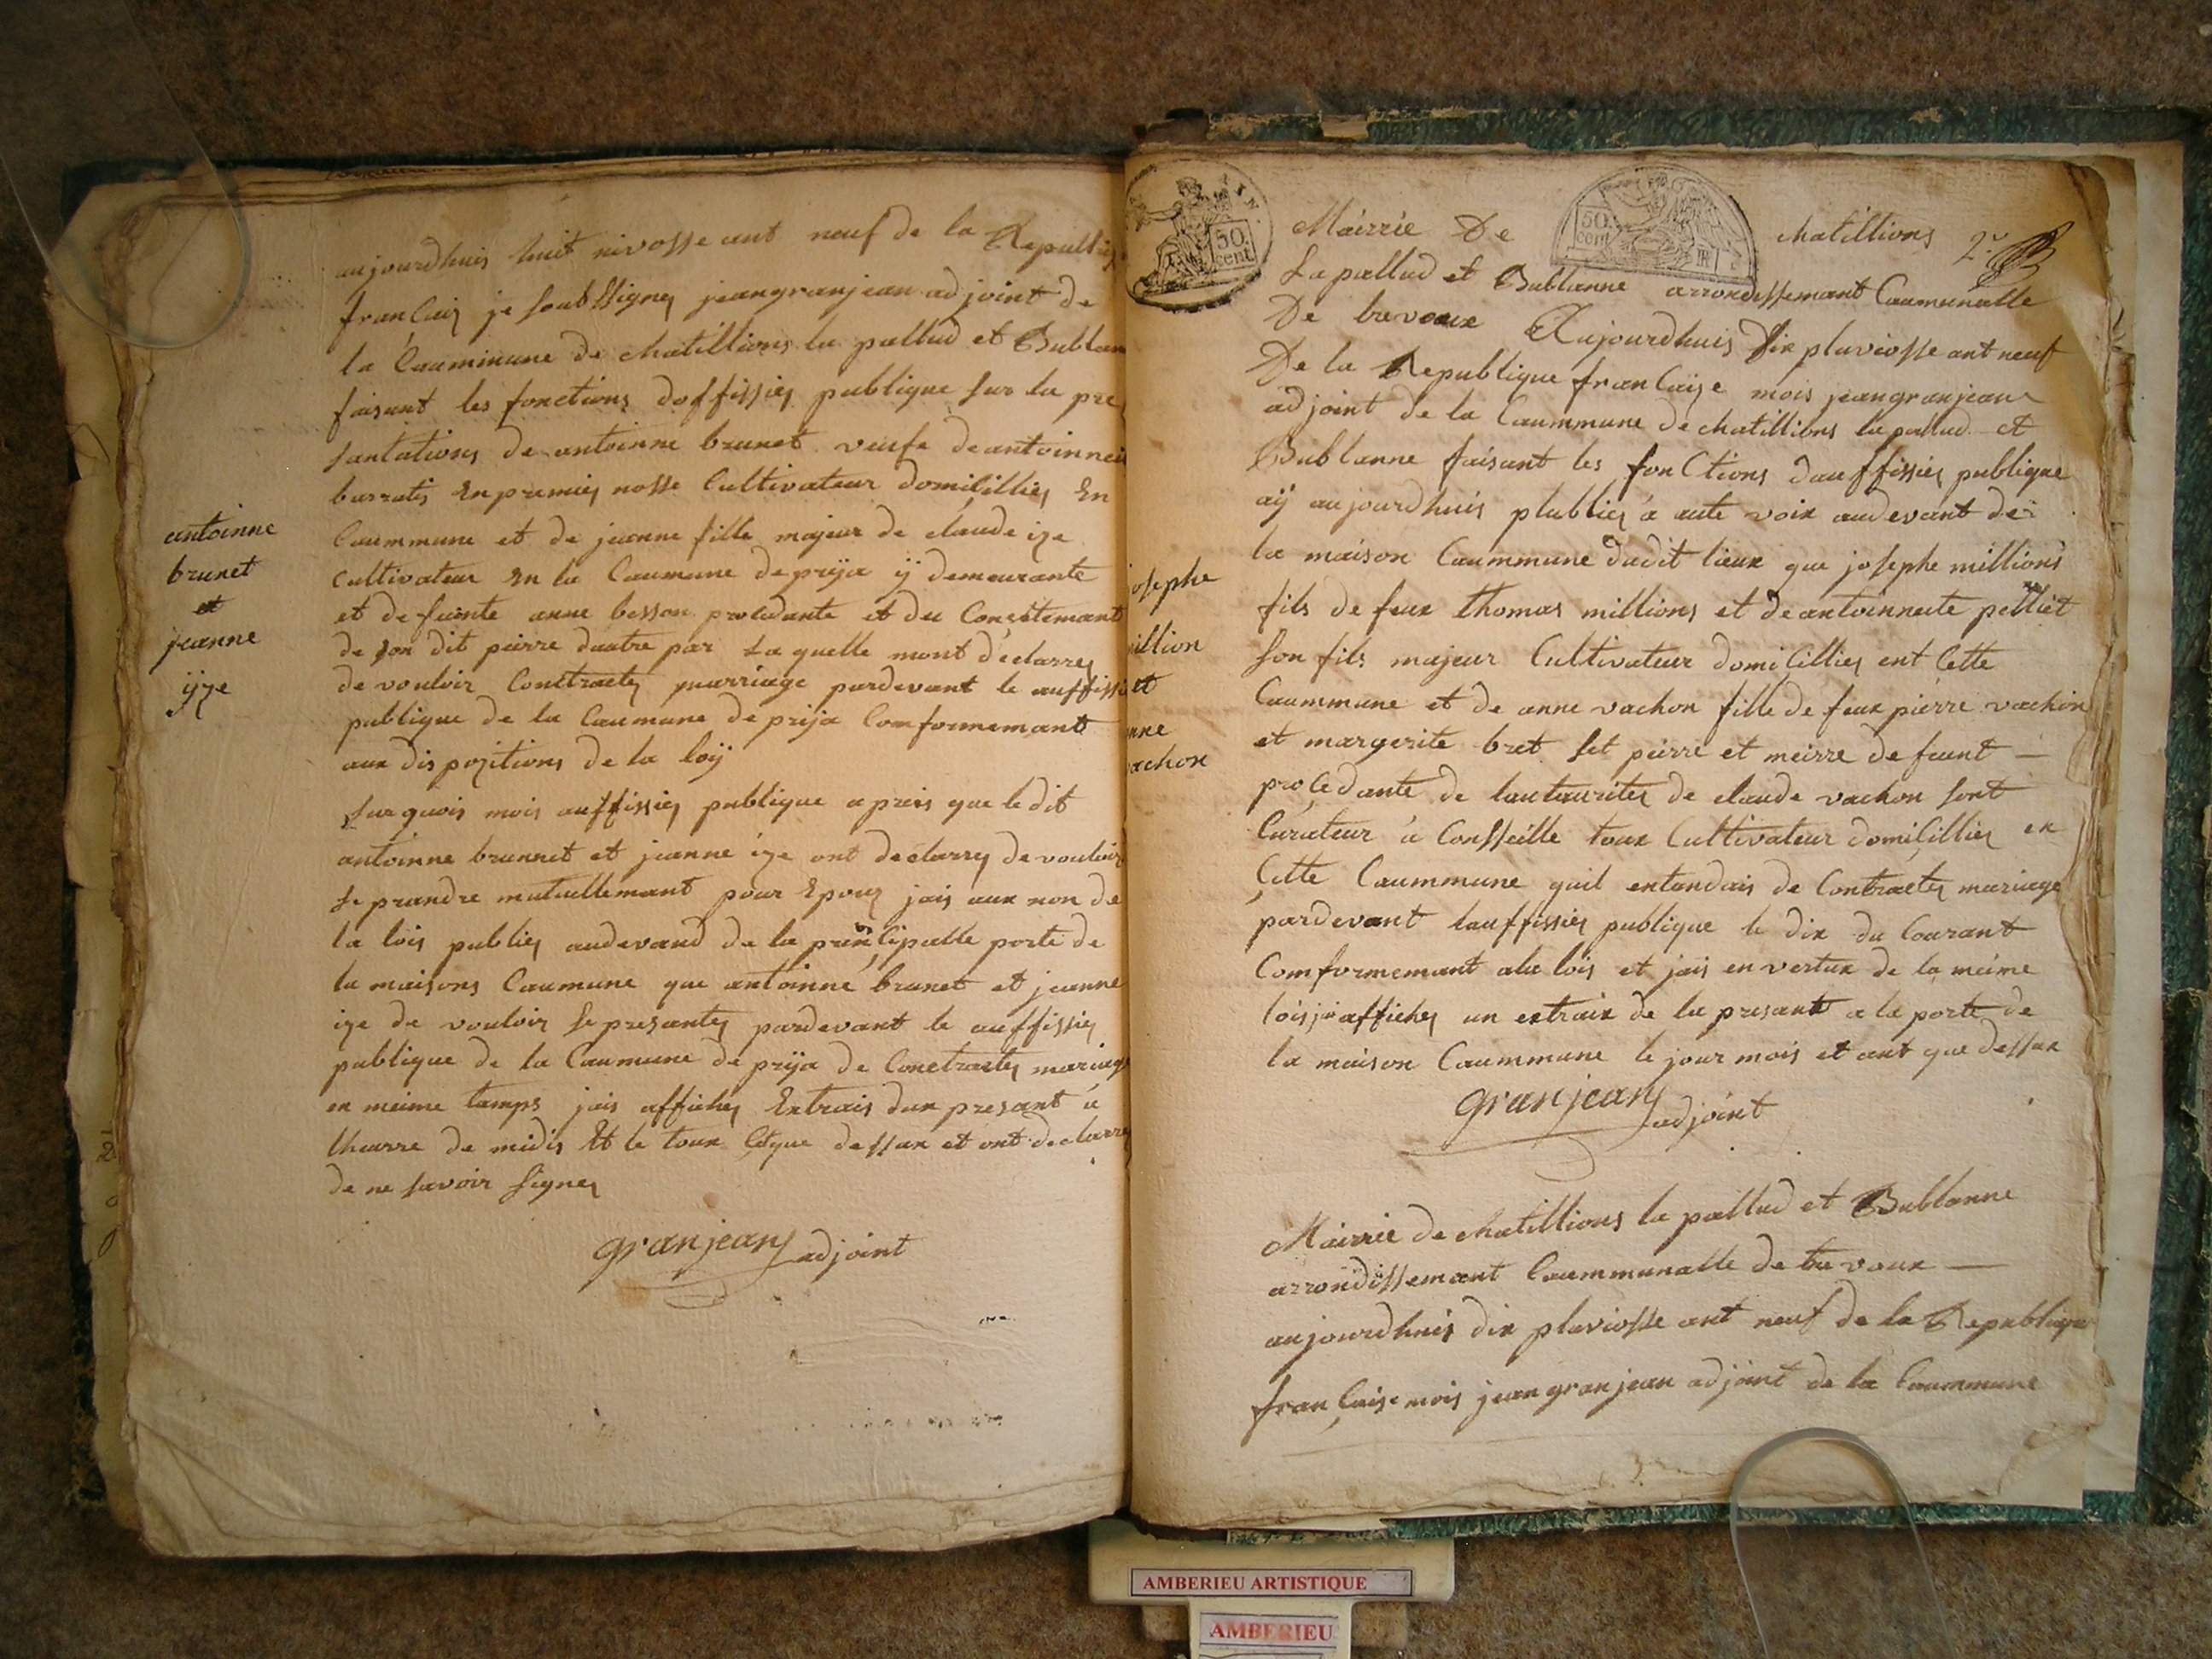 aujourdhuis huit nivosse ant neuf de la Republiq
francaiz je soubssignez jeangranjean adjoint de
la Caummune de chatillions la pallud et Bublan
faisant les fonctions doffissiez publique sur la pre
santations de antoinne brunet veufe de antoinne
barratis En premiez nosse Cultivateur domicilliez En
Caummune et de jeanne fille majeur de claude ize
Cultivateur En la Caumune de prija ij demeurante
et de fuinte anne besson procedante et du Consetemant
de son dit peirre dautre par La quelle mont declarrez
de vouloir Contractez marriage pardevant le auffissi
publique de la Caumune de prija Comformemant
aux dispozitions de la loij
surquois mois auffissiez publique apreis que le dit
antoinne brunnet et jeanne ize ont declarrez de vouloir
se prandre mutuellemant pour Epouz jais aux non de
la lois publiez audevand de la principalle porte de
la maisons Caumune que antoinne brunet et jeanne
ize de vouloir se presantez pardevant le auffissiez
publique de la Caumune de prija de Contractez mariage
en meime tamps jais affichez Extrais dun presant a
lheurre de midis Et le toux Ceque dessux et ont declarrez
de ne savoir signez
granjean adjoint
antoinne
brunet
et
jeanne
ijze
50 cent
50 cent
Mairrie De chatillions 2
La pallud et Bublanne arrondissemant Caumunalle
De trevoux Aujourdhuis dix pluviosse ant neuf
De la Republique francaize mois jeangranjean
adjoint de la Caummune de chatillions la pallud et
Bublanne faisant les fonctions dauffissiez publique
aij aujourdhuis plubliez a aute voix audevant de
la maison Caummune dudit lieux que josephe millions
fils de feux thomas millions et de antoinneite pelliet
son fils majeur Cultivateur domicilliez ent Cette
Caummune et de anne vachon fille de feux pierre vachon
et margerite bret set peirre et meirre de feunt
procedante de lautaurites de claude vachon sont
Curateur a Consseille toux Cultivateur domicilliez en
Cette Caummune quil entandais de Contractez mariage
pardevant lauffissiez publique le dix du Courant
Comformemant ala lois et jais en vertux de la meime
lois jai affichez un extraix de la presant a la porte de
la maison Caummune le jour mois et ant que dessux
granjean adjoint
josephe
million
et
anne
vachon
Mairrie de chatillions la pallud et Bublanne
arrondissemant Caummunalle de trevoux
aujourdhuis dix pluviosse ant neuf de la Republique
francaise mois jean granjean adjoint de la Caummune
AMBERIEU ARTISTIQUE
AMBERIEU